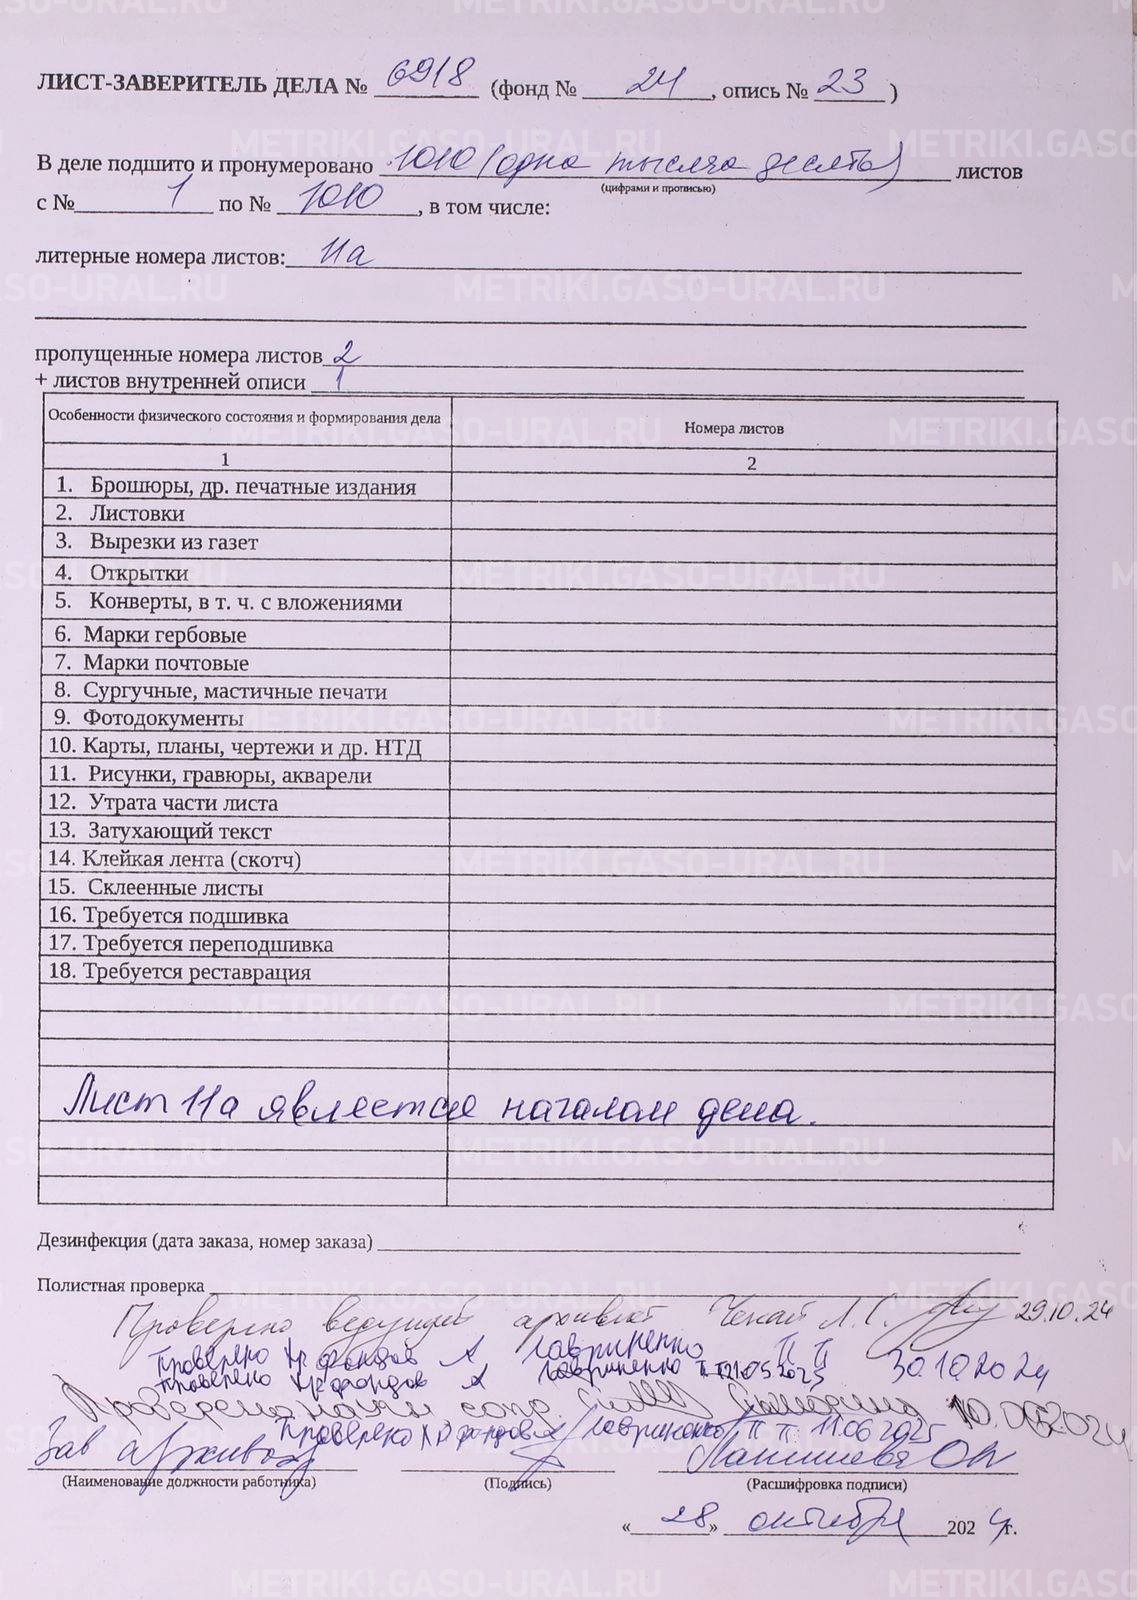 ЛИСТ-ЗАВЕРИТЕЛЬ ДЕЛА № 6918 (фонд № 24, опись № 23)
В деле подшито и пронумеровано 1010 (одна тысяча десять) листов
(цифрами и прописью)
с № 1 по № 1010, в том числе:
литерные номера листов: 11а
пропущенные номера листов 2
+ листов внутренней описи 1
Особенности физического состояния и формирования дела Номера листов
1 2
1. Брошюры, др. печатные издания
2. Листовки
3. Вырезки из газет
4. Открытки
5. Конверты, в т. ч. с вложениями
6. Марки гербовые
7. Марки почтовые
8. Сургучные, мастичные печати
9. Фотодокументы
10. Карты, планы, чертежи и др. НТД
11. Рисунки, гравюры, акварели
12. Утрата части листа
13. Затухающий текст
14. Клейкая лента (скотч)
15. Склеенные листы
16. Требуется подшивка
17. Требуется переподшивка
18. Требуется реставрация
Лист 11а является началом дела.
Дезинфекция (дата заказа, номер заказа)
Полистная проверка
Проверено ведущий архивист Л.С. 29.10.24
Проверено хр фондов Гавриненко П П 30.10.2024
Проверено хр фондов Гавриненко 21.05.2025
Проверено
Проверено хр фондов Гавриненко П П 11.06.2025
Зав архивохр
(Наименование должности работника) (Подпись) (Расшифровка подписи)
«28» октября 2024г.
METRIKI.GASO-URAL.RU